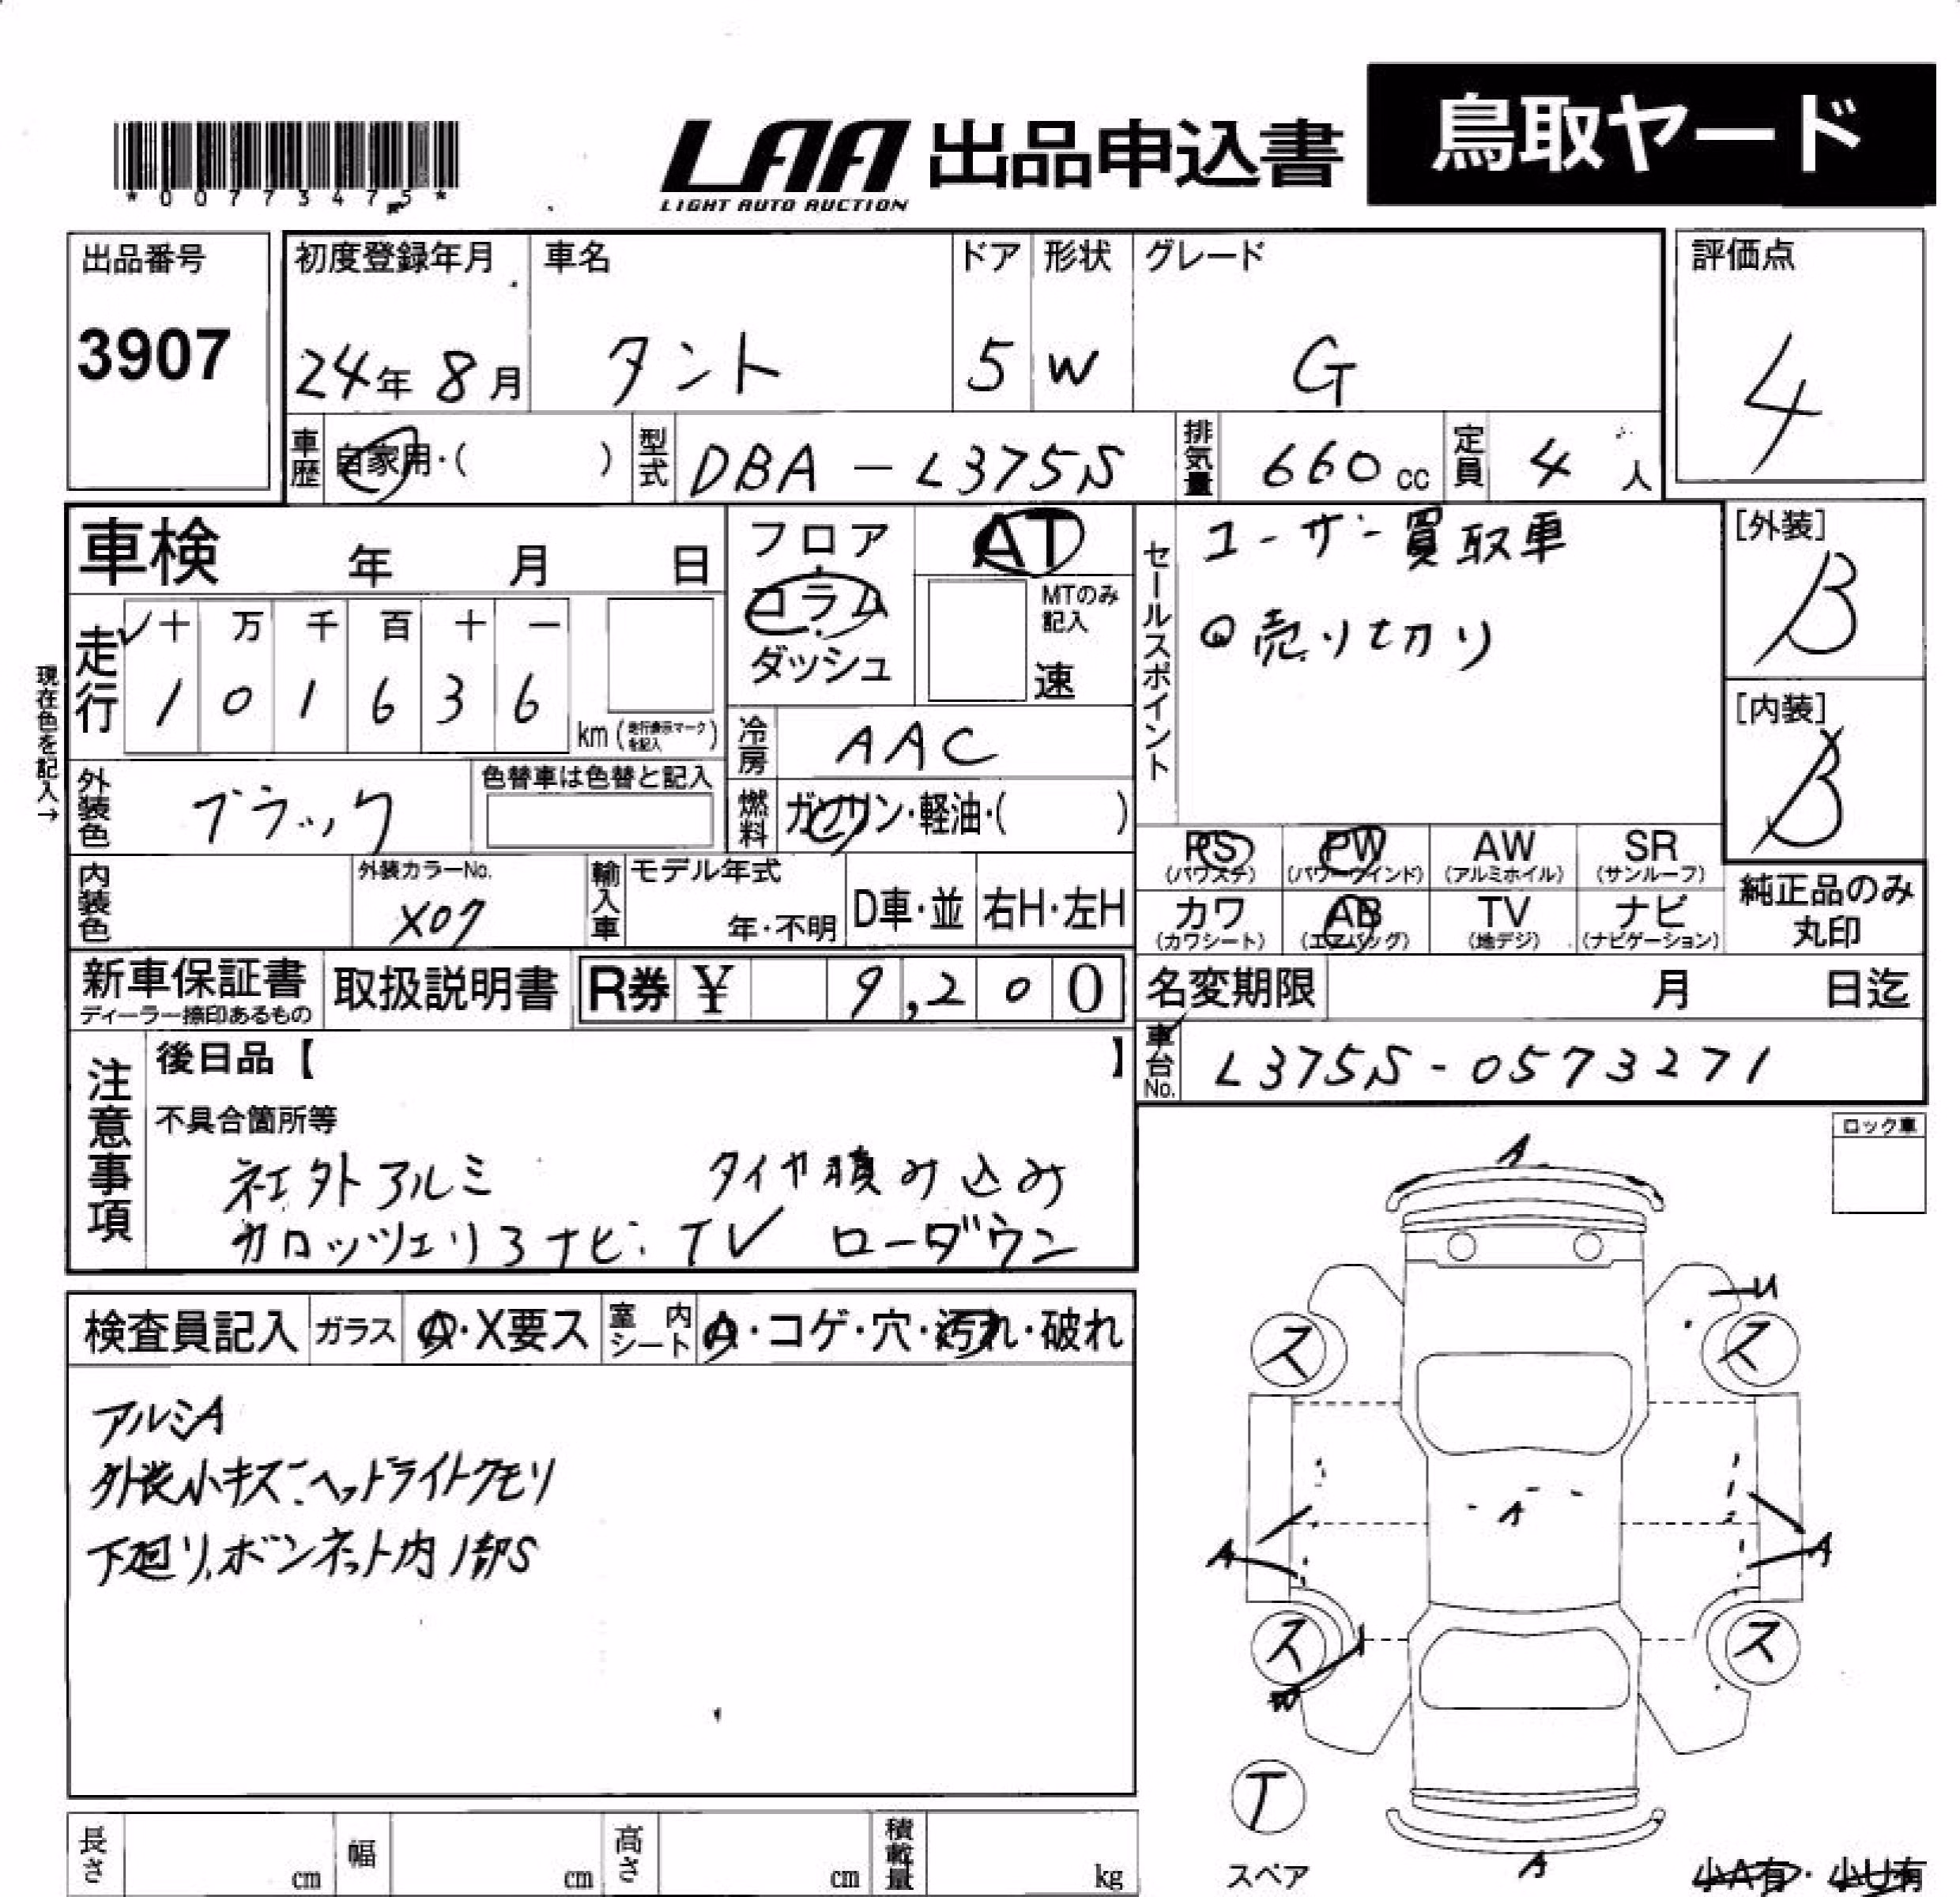 *00773475*
LAA 出品申込書 鳥取ヤード
LIGHT AUTO AUCTION
出品番号 3907
初度登録年月 24年 8月
車名 タント
ドア 5
形状 W
グレード G
評価点 4
車歴 自家用・( )
型式 DBA-L375S
排気量 660cc
定員 4人
車検 年 月 日
フロア
コラム
ダッシュ
AT
MTのみ記入
速
セールスポイント
ユーザー買取車
◎売り切り
[外装] B
[内装] B
現在色を記入→
走行 十 万 千 百 十 一
1 0 1 6 3 6 km (走行表示マークを記入)
冷房 AAC
外装色 ブラック
色替車は色替と記入
燃料 ガソリン・軽油・( )
PS (パワステ) PW (パワーウインド) AW (アルミホイル) SR (サンルーフ)
カワ (カワシート) AB (エアバッグ) TV (地デジ) ナビ (ナビゲーション)
純正品のみ
丸印
内装色
外装カラーNo. X07
輸入車 モデル年式 年・不明 D車・並 右H・左H
新車保証書
ディーラー捺印あるもの
取扱説明書
R券 ¥ 9,200
名変期限 月 日迄
車台No. L375S-0573271
注意事項
後日品【 】
不具合箇所等
社外アルミ タイヤ積み込み
カロッツェリアナビ・TV ローダウン
ロック車
検査員記入 ガラス A・X要ス 室内シート A・コゲ・穴・汚れ・破れ
アルミA
外装小キズ ヘッドライトクモリ
下廻り、ボンネット内1部S
A
U
ス ス
A
A A
ス ス
W
T
スペア
A
小A有・小U有
長さ cm 幅 cm 高さ cm 積載量 kg